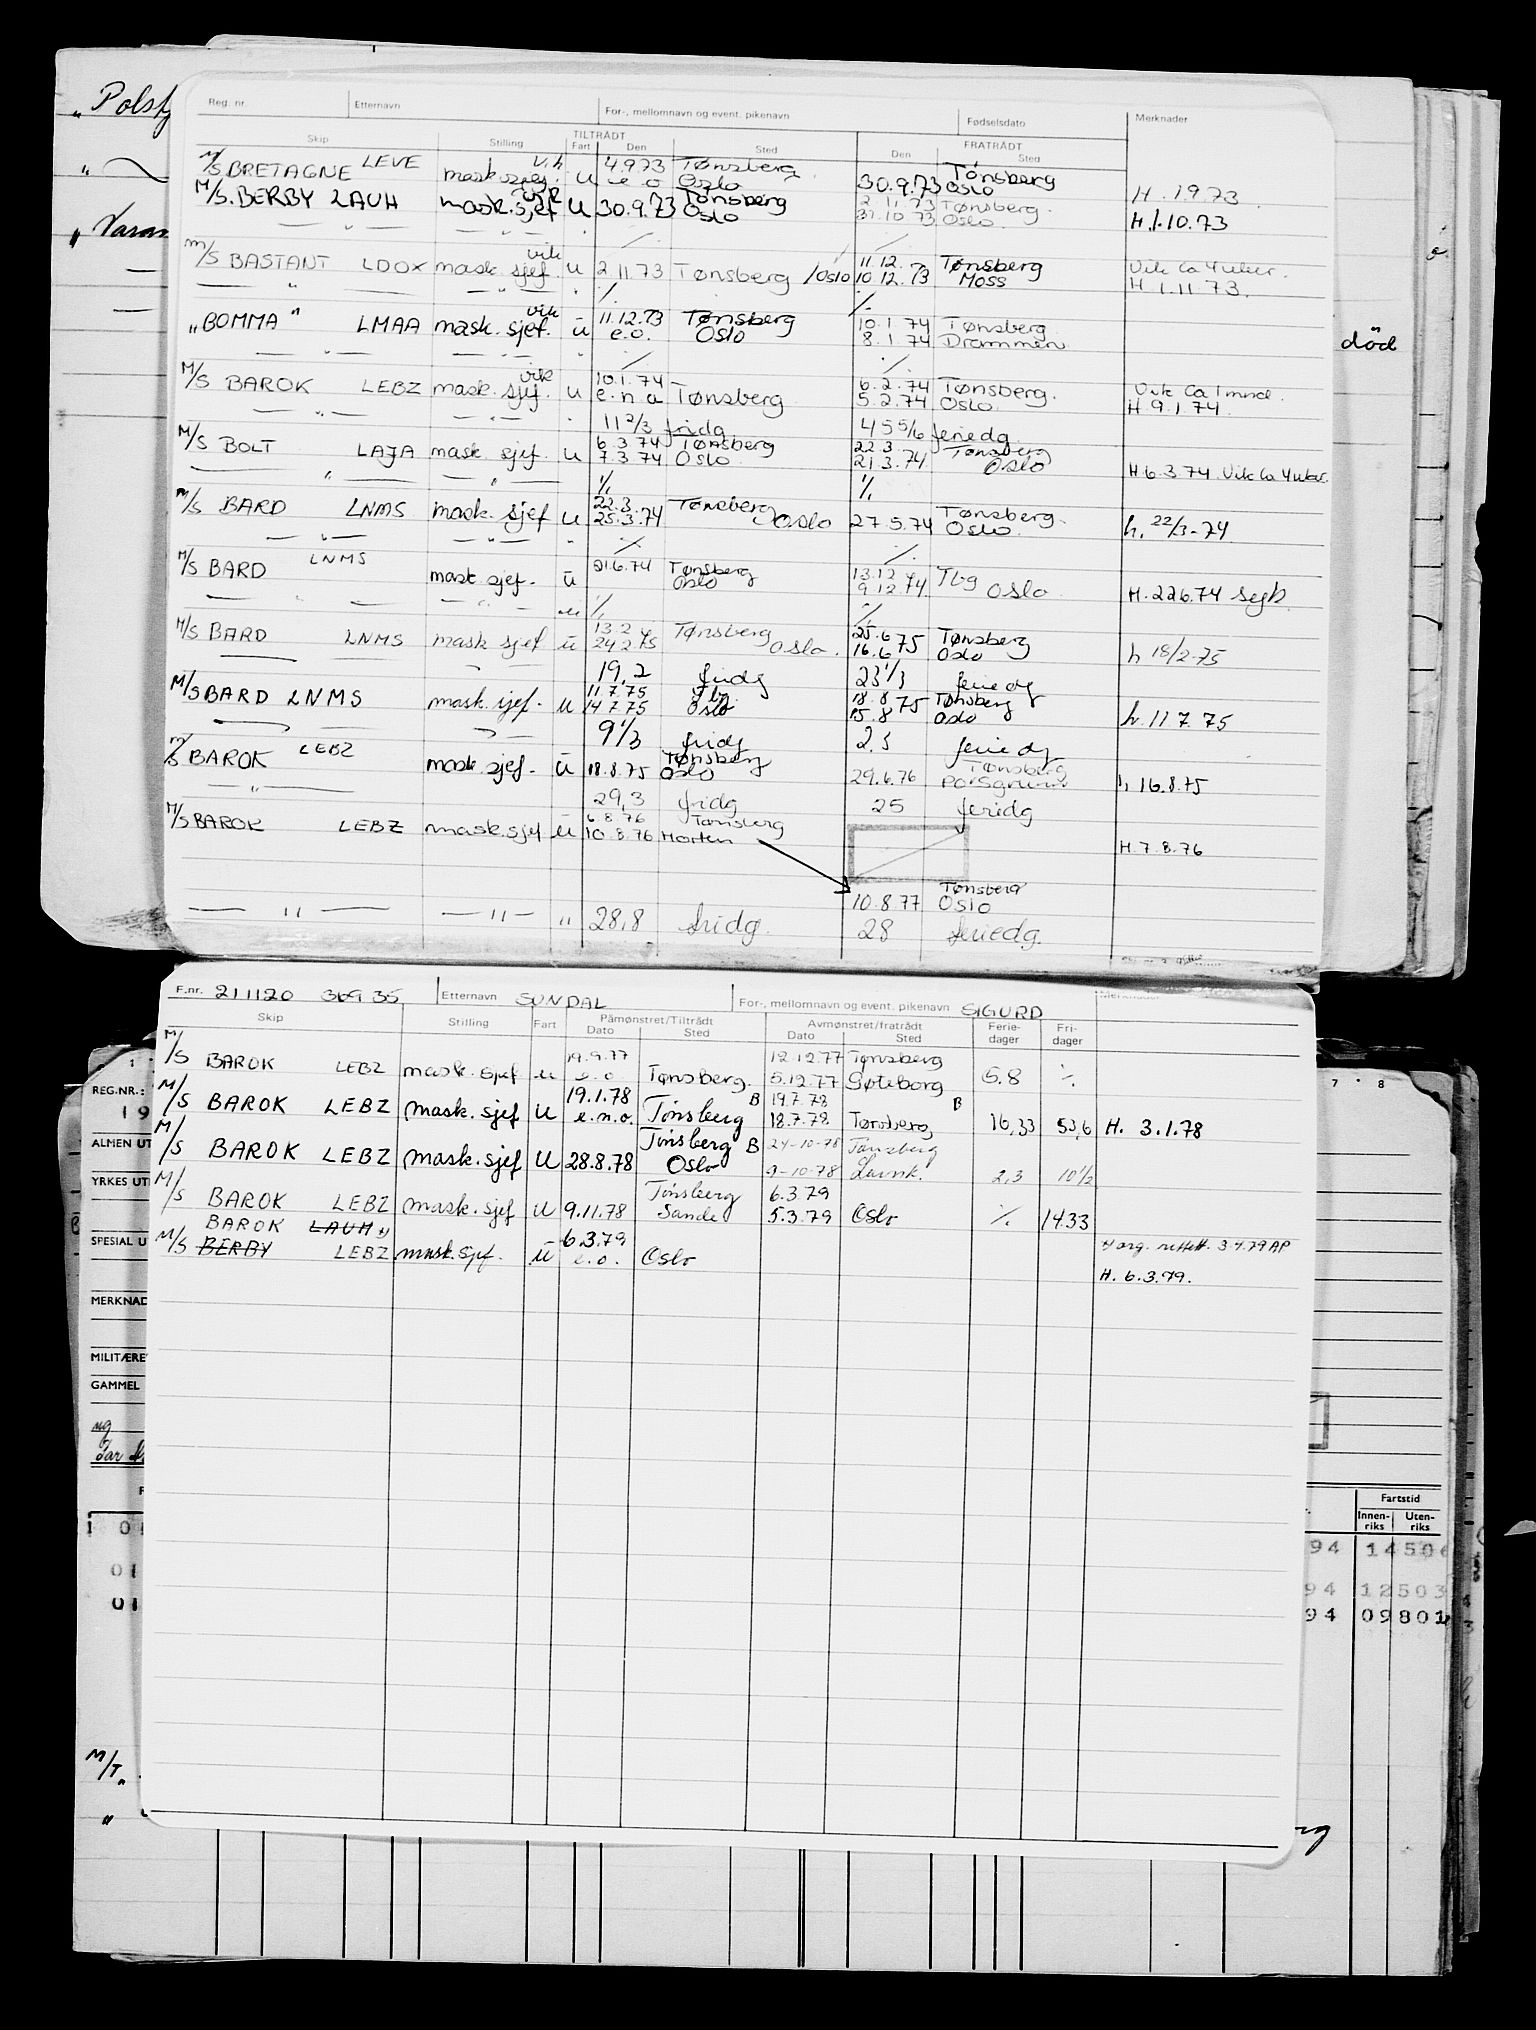 „ Polst
„
„ Varan
Reg. nr. Etternavn For-, mellomnavn og event. pikenavn Fødselsdato Merknader
TILTRÅDT FRATRÅDT
Skip Stilling Fart Den Sted Den Sted
M/S BRETAGNE LEVE mask.sjef. vik u 4.9.73 Tønsberg Tønsberg
e.o Oslo 30.9.73 Oslo H. 1.9.73
M/S. BERBY LAUH mask.sjef vik u 30.9.73 Tønsberg 2.11.73 Tønsberg.
Oslo 31.10.73 Oslo. H.1.10.73
— „ — — „ — „ ⁒ ⁒
M/S BASTANT LDOX mask. sjef. vik u 2.11.73 Tønsberg /Oslo 11.12. Tønsberg Vik ca 4 uker.
10.12.73 Moss H 1.11.73.
— „ — — „ — „ ⁒ ⁒
„ BOMMA " LMAA mask. sjef. vik u 11.12.73 Tønsberg 10.1.74 Tønsberg
e.o. Oslo 8.1.74 Drammen
— „ — — „ — ⁒ ⁒
M/S BAROK LEBZ mask. sjef. vik u 10.1.74 6.2.74 Tønsberg. Vik Ca 1 mnd.
e.n.o Tønsberg 5.2.74 Oslo. H 9.1.74.
— „ — — „ — 11 2/3 fridg 45 5/6 feriedg
M/S BOLT LAJA mask. sjef. u 6.3.74 Tønsberg 22.3. Tønsberg
7.3.74 Oslo 21.3.74 Oslo H.6.3.74. Vik ca 4 uker.
— „ — — „ — ⁒ ⁒
M/S BARD LNMS mask. sjef u 22.3. Tønsberg Tønsberg.
25.3.74 Oslo 27.5.74 Oslo. h. 22/3-74
— „ — — „ — „ ⁒ ⁒
M/S BARD LNMS mask sjef. u 21.6.74 Tønsberg 13.12 Tbg
Oslo 9.12.74 Oslo H. 22.6.74
— „ — — „ — „ ⁒ ⁒
M/S BARD LNMS mask sjef u 13.2 Tønsberg 25.6 Tønsberg
24.2.75 Oslo. 16.6.75 Oslo h 18/2-75
19,2 fridg 23 1/3 feriedg
M/S BARD LNMS mask. sjef. u 11.7.75 Tbg. 18.8.75 Tønsberg
14.7.75 Oslo 15.8 Oslo h. 11 7. 75
9 1/3 fridg 2,5 feriedg
M/S BAROK LEBZ mask sjef. u Tønsberg Tønsberg
18.8.75 Oslo 29.6.76 Porsgrunn h 16.8.75
— „ — 29,3 fridg 25 feridg
M/S BAROK LEBZ mask.sjef u 6.8.76 Tønsberg
10.8.76 Horten H.7.8.76
Tønsberg
10.8.77 Oslo
— " — — " — " 28,8 fridg. 28 feriedg.
död
F.nr. 211120 36935 Etternavn SUNDAL For-, mellomnavn og event. pikenavn SIGURD Merknader
Skip Stilling Fart Påmønstret/Tiltrådt Avmønstret/fratrådt Ferie- Fri-
Dato Sted Dato Sted dager dager
M/S BAROK LEBZ mask. sjef u 19.9.77 12.12.77 Tønsberg
e.o. Tønsberg. 5.12.77 Gøteborg 5.8 ⁒
M/S BAROK LEBZ mask. sjef u 19.1.78 B 19.7.78 B
e.n.o. Tönsberg 18.7.78 Tønsberg 16,33 53,6 H. 3.1.78
M/S BAROK LEBZ mask. sjef u 28.8.78 Tönsberg B 24-10-78 Tønsberg
Oslo 9-10-78 Larvik. 2,3 10 1/2
M/S BAROK LEBZ mask. sjef u 9.11.78 Tönsberg 6.3.79
Sande 5.3.79 Oslo ⁒ 14.33
BAROK LAUH 6.3.79
M/S BERBY LEBZ mask.sjef. u e.o. Oslo rettet. 3.4.79 AP
H. 6.3.79.
REG.NR.:
1 9
ALMEN UT
YRKES UT
SPESIAL U
MERKNAD
MILITÆRE
GAMMEL
7 8
Fartstid
Innen- Uten-
riks riks
1 01 94 14506
01 94 12503
01 94 09801
M/T „
"